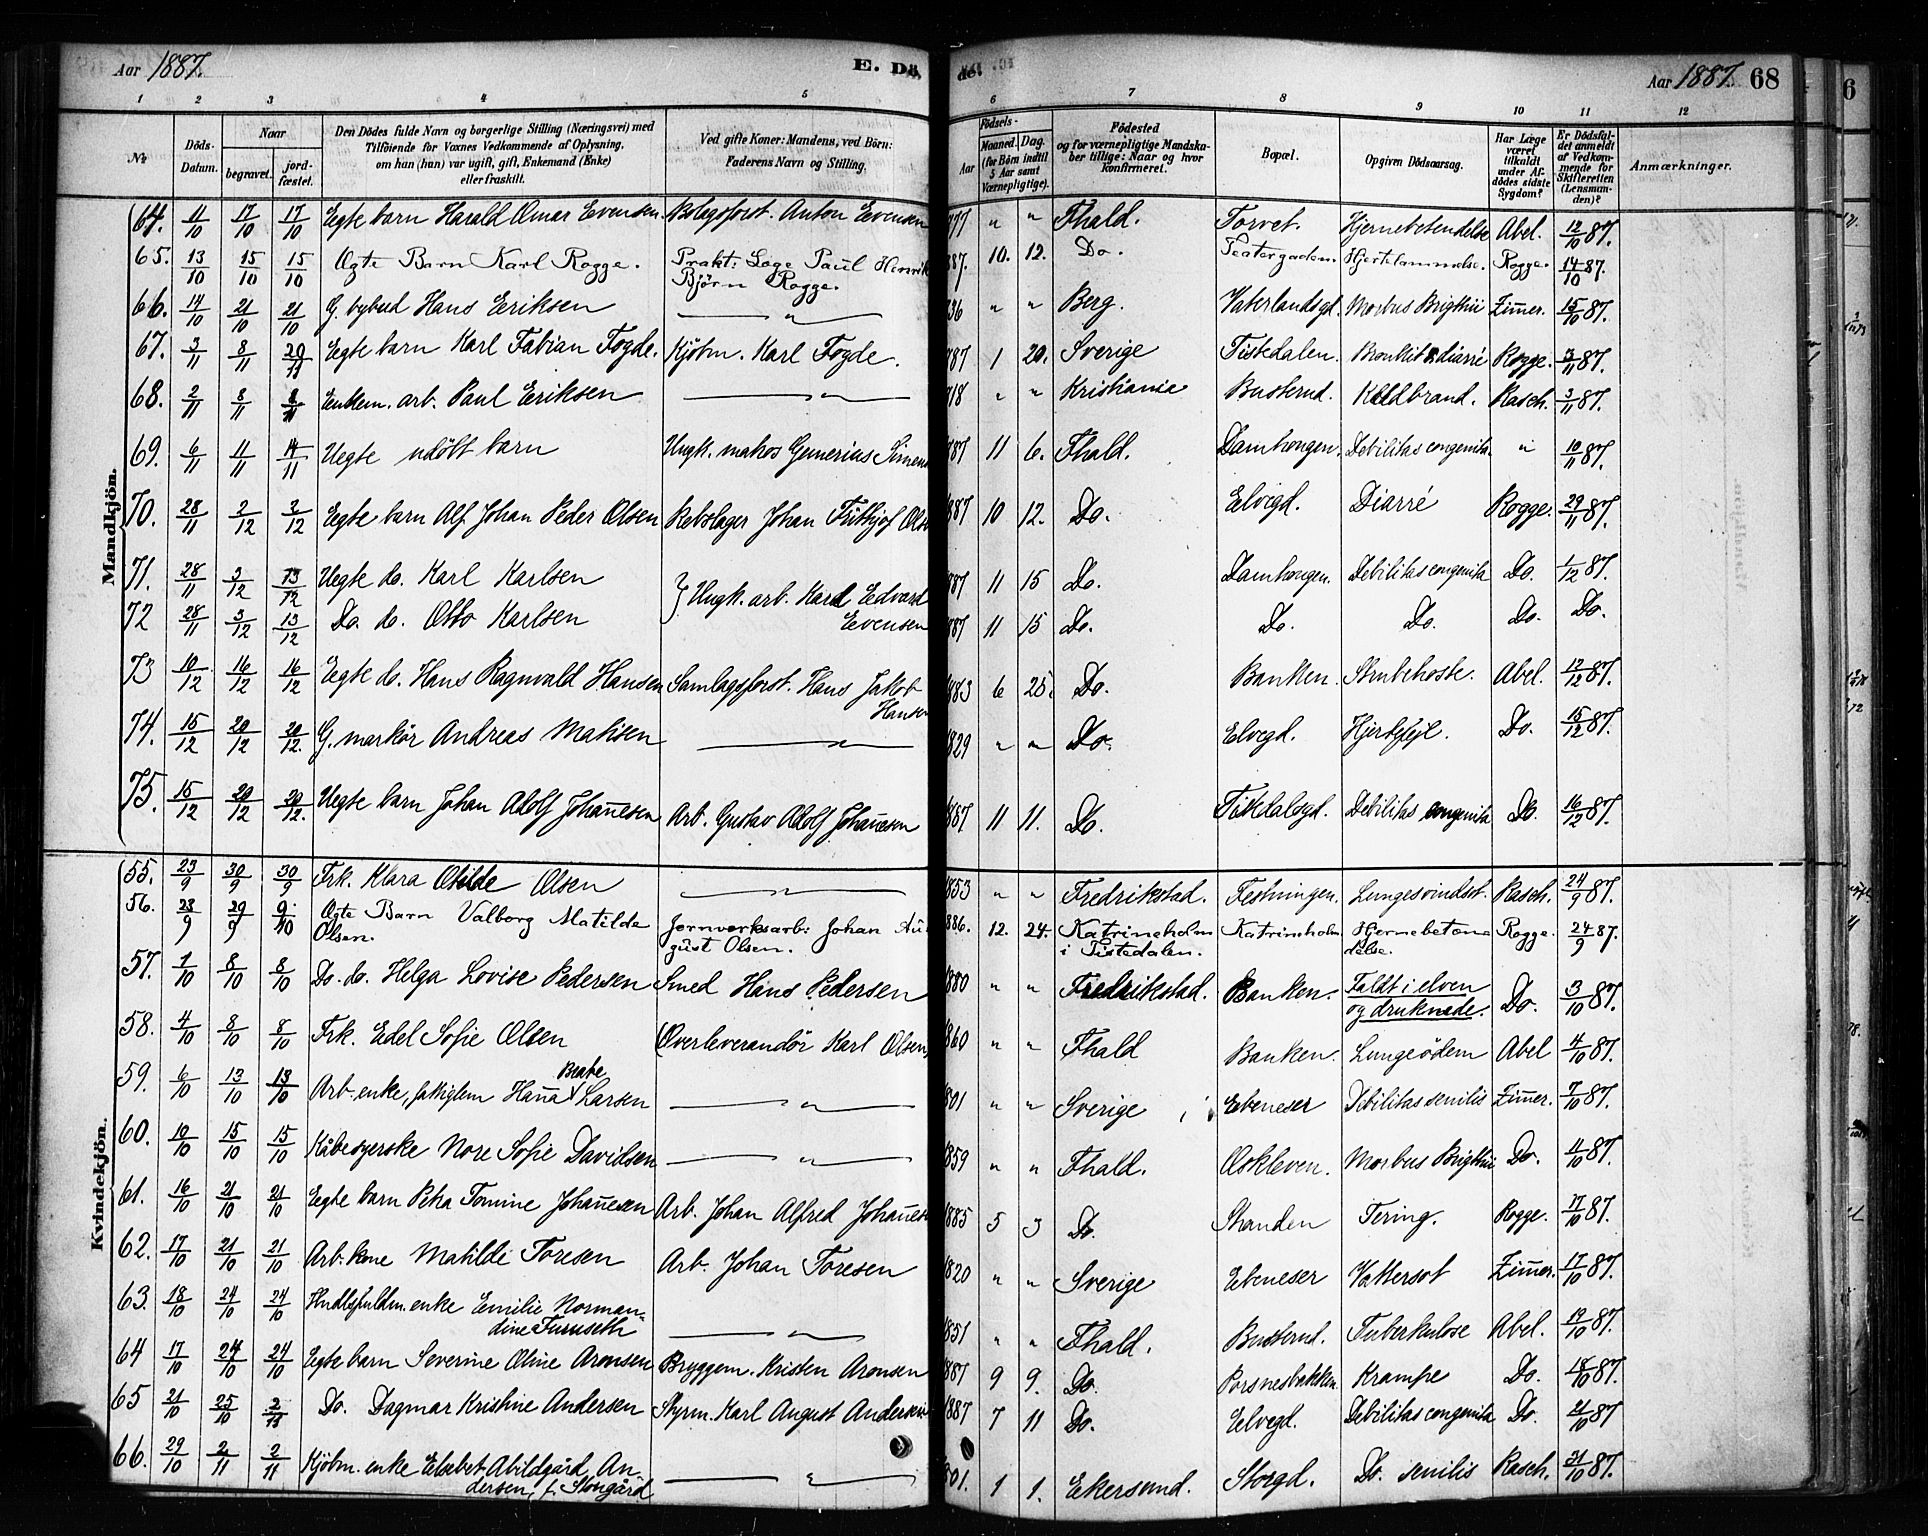 Aar 1887. E. Dö
1 2 3 4 5
№ Döds-Datum. Naar begravet. jord-fæstet. Den Dödes fulde Navn og borgerlige Stilling (Næringsvei) med Tilföiende for Voxnes Vedkommende af Oplysning, om han (hun) var ugift, gift, Enkemand (Enke) eller fraskilt. Ved gifte Koner: Mandens, ved Börn: Faderens Navn og Stilling.
de. Aar 1887. 68
6 7 8 9 10 11 12
Födsels- Aar Maaned. Dag. (for Börn indtil 5 Aar samt Værnepligtige). Födested og for værnepligtige Mandskaber tillige: Naar og hvor konfirmeret. Bopæl. Opgiven Dödsaarsag. Har Læge været tilkaldt under Afdödes sidste Sygdom? Er Dödsfaldet anmeldt af Vedkommende for Skifteretten (Lensmanden)? Anmærkninger.
Mandkjön.
64. 11/10 17/10 17/10 Egte barn Harald Omar Evensen. Bolagsforst. Anton Evensen 877 " " Fhald. Torvet. Hjernebetendelse Abel. 12/10 87.
65. 13/10 15/10 15/10 Ægte Barn Karl Rogge. Prakt: Læge Paul Henrik Björn Rogge. 887. 10. 12. Do. Teatergaden. Hjertelammelse. Rogge. 14/10 87.
66. 14/10 21/10 21/10 G. bybud Hans Eriksen " 836 " " Berg. Vaterlandsgd. Morbus Brigthii Zimmer. 15/10 87.
67. 3/11 8/11 20/11 Egte barn Karl Fabian Fogde. Kjöbm. Karl Fogde. 887 1 20. Sverige Tistedalen. Bronkit & diarré Rogge. 3/11 87.
68. 2/11 8/11 8/11 Enkem. arb. Paul Eriksen " 818 " " Kristiania Busterud. Koldbrand. Rasch. 3/11 87.
69. 6/11 11/11 14/11 Uegte udöbt barn Ungk. matros Gemerius Simens 887 11 6. Fhald. Damhaugen. Debilitas congenita. " 10/11 87.
70. 28/11 3/12 3/12 Egte barn Alf Johan Peder Olsen Rebslager Johan Frithjof Ols 1887 10 12. Do. Elvegd. Diarré Rogge. 29/11 87.
71. 28/11 3/12 13/12 Uegte do. Karl Karlsen } Ungk. arb. Karl Edvard 887 11 15 Do. Damhaugen. Debilitas congenita Do. 1/12 87.
72 28/11 3/12 13/12 Do. do. Otto Karlsen Evensen 887 11 15 Do. Do. Do. Do. Do.
73 10/12 16/12 16/12 Egte do. Hans Ragnvald Hansen Samlagsforst. Hans Jakob Hansen 1883 6 25. Do. Banken. Strubehoste. Abel. 12/12 87.
74. 15/12 20/12 20/12. G. markör Andreas Matisen " 1829 " " Do. Elvegd. Hjertefejl. Do. 15/12 87.
75. 15/12 20/12 20/12. Uegte barn Johan Adolf Johannesen Arb. Gustav Adolf Johannesen 1887 11 11. Do. Tistedalsgd. Debilitas congenita Do. 16/12 87.
Kvindekjön.
55. 23/9 30/9 30/9 Frk. Klara Otilde Olsen " 1853 " " Fredrikstad. Festningen. Lungesvindsot. Rasch. 24/9 87.
56. 23/9 29/9 9/10 Ægte Barn Valborg Matilde Olsen. Jernverksarb: Johan August Olsen. 886. 12. 24. Katrineholm i Tistedalen. Katrineholm Hjernebetændelse. Rogge. 24/9 87.
57. 1/10 8/10 8/10 Do. do. Helga Lovise Pedersen Smed Hans Pedersen 1880 " " Fredrikstad. Banken. Faldt i elven og druknede. Do. 3/10 87.
58. 4/10 8/10 8/10 Frk. Edel Sofie Olsen (Overleverandör Karl Olsen) 1860 " " Fhald Banken. Lungeödem Abel 4/10 87.
59. 6/10 13/10 13/10 Arb. enke, fattiglem Hanna Beate Larsen " 801 " " Sverige Ebeneser Debilitas senilis Zimmer. 7/10 87.
60. 10/10 15/10 15/10 Kåbesyerske Nore Sofie Davidsen " 1859 " " Fhald. Oskleven. Morbus Brigthii Do. 11/10 87.
61. 16/10 21/10 21/10 Egte barn Petra Tomine Johannesen Arb. Johan Alfred Johannes 1885 5 3 Do. Stranden Tering. Rogge. 17/10 87.
62. 17/10 21/10 21/10 Arb. kone Matilde Toresen Arb. Johan Toresen 1820 " " Sverige Ebeneser Vattersot Zimmer. 17/10 87.
63. 18/10 24/10 24/10 Hndlsfuldm. enke Emilie Normandine Furuseth " 1851 " " Fhald. Busterud. Tuberkulose Abel. 19/10 87.
64 17/10 24/10 24/10 Egte barn Severine Oline Aronsen Bryggem. Kristen Aronsen 1887 9 9. Do. Porsnesbakken. Krampe Do. 18/10 87.
65 21/10 25/10 2/11 Do. Dagmar Kristine Andersen Styrm. Karl August Andersen 1887 7 11 Do. Elvegd. Debilitas congenita Do. 21/10 87
66. 29/10 2/11 2/11 Kjöbm. enke Elsebet Abildgård Andersen, f. Stongård " 801. 1 1. Ekersund. Storgd. Do. senilis Rasch. 31/10 87.